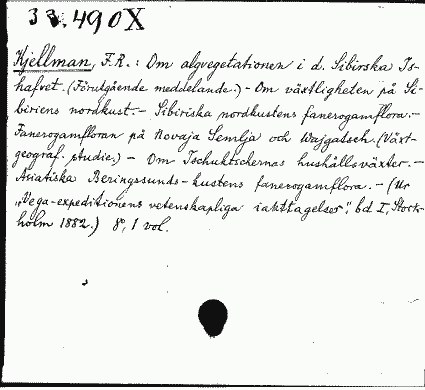 33.490X
Kjellman, F.R.: Om algvegetationen i d. Sibirska Is-
hafvet. (Förutgående meddelande.) - Om växtligheten på Si-
biriens nordkust. - Sibiriska nordkustens fanerogamflora. -
Fanerogamfloran på Novaja Semlja och Wajgatsch. (Växt-
geograf. studie.) - Om Tschuktschernas hushållsväxter. -
Asiatiska Beringssunds-kustens fanerogamflora. - (Ur
„Vega-expeditionens vetenskapliga iakttagelser", bd I, Stock-
holm 1882.) 8°, 1 vol.